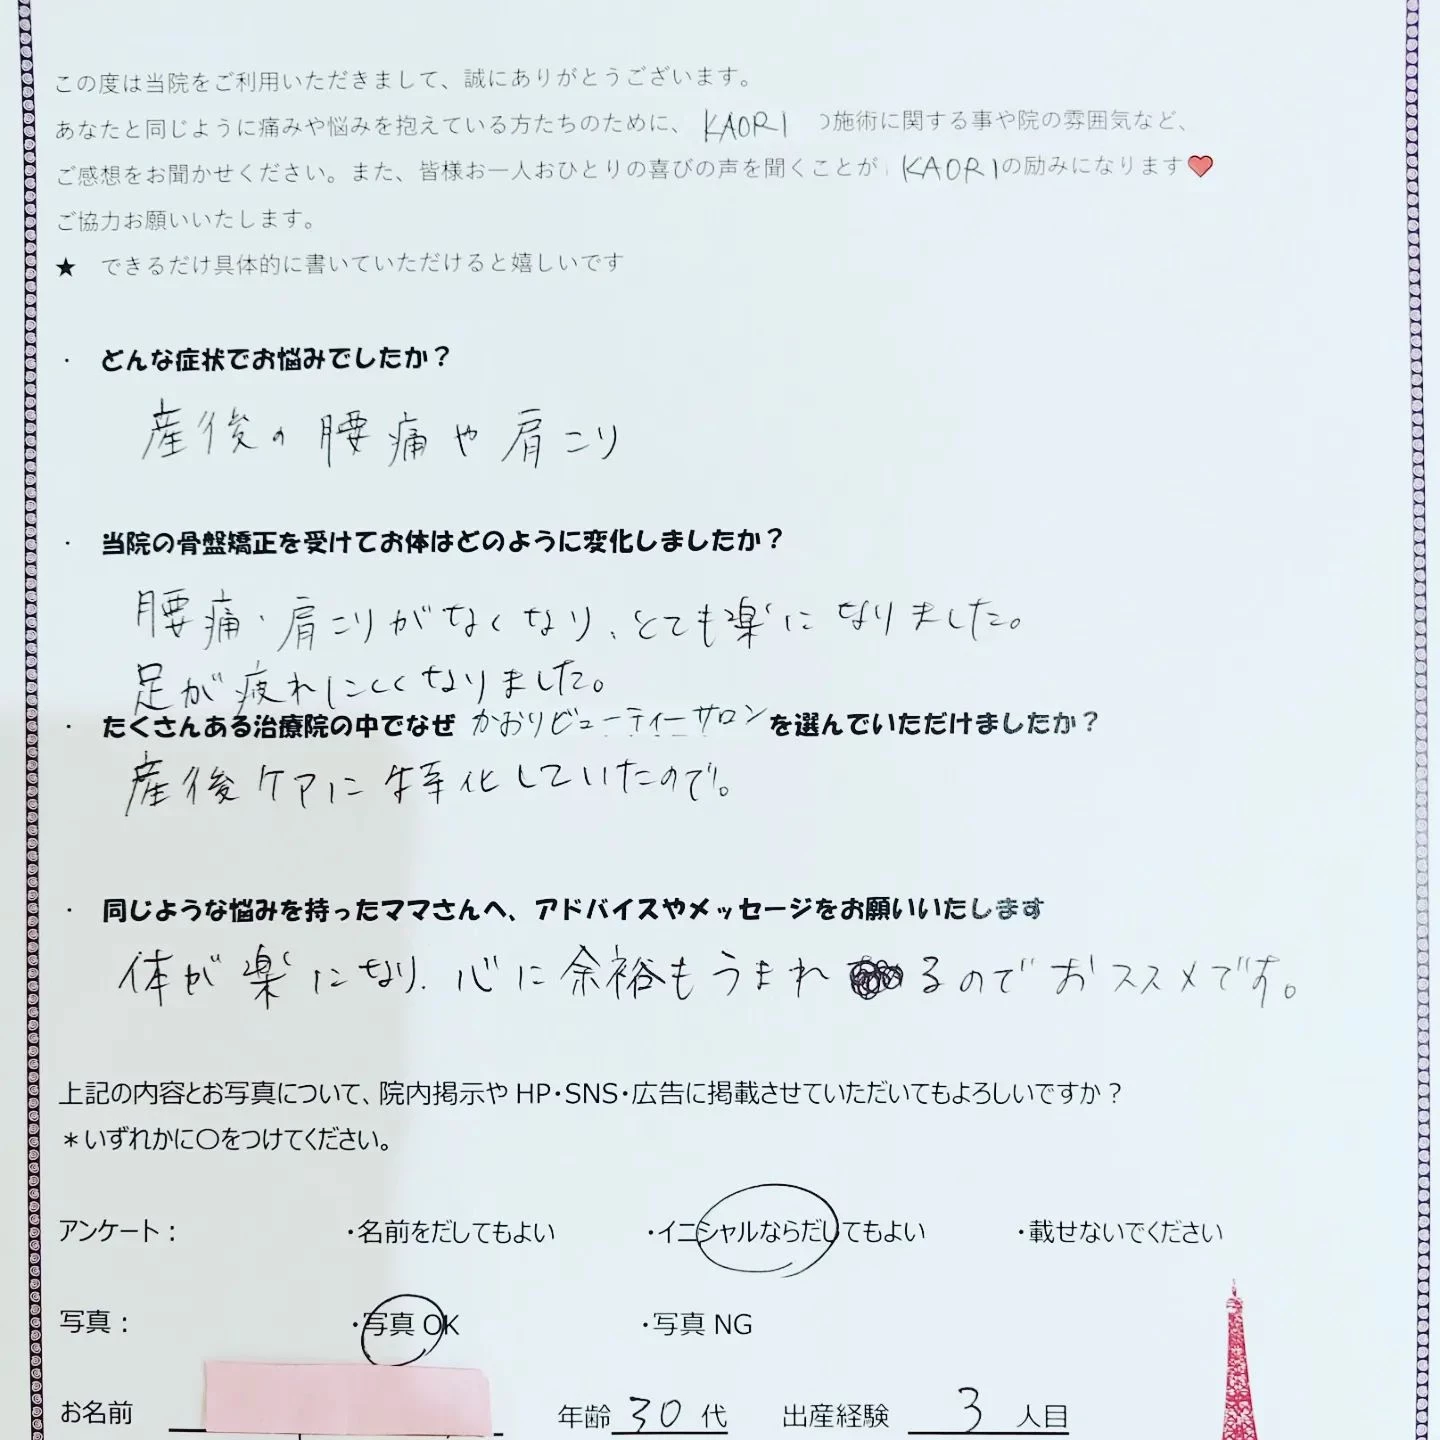 この度は当院をご利用いただきまして、誠にありがとうございます。
あなたと同じように痛みや悩みを抱えている方たちのために、 KAORI の施術に関する事や院の雰囲気など、
ご感想をお聞かせください。また、皆様お一人おひとりの喜びの声を聞くことが KAORIの励みになります♥
ご協力お願いいたします。
★ できるだけ具体的に書いていただけると嬉しいです
・ どんな症状でお悩みでしたか？
産後の腰痛や肩こり
・ 当院の骨盤矯正を受けてお体はどのように変化しましたか？
腰痛・肩こりがなくなり、とても楽になりました。
足が疲れにくくなりました。
・ たくさんある治療院の中でなぜ かおりビューティーサロン を選んでいただけましたか？
産後ケアに特化していたので。
・ 同じような悩みを持ったママさんへ、アドバイスやメッセージをお願いいたします
体が楽になり、心に余裕もうまれるのでおススメです。
上記の内容とお写真について、院内掲示や HP・SNS・広告に掲載させていただいてもよろしいですか？
＊いずれかに〇をつけてください。
アンケート： ・名前をだしてもよい ・イニシャルならだしてもよい ・載せないでください
写真： ・写真 OK ・写真 NG
お名前 年齢 30 代 出産経験 3 人目